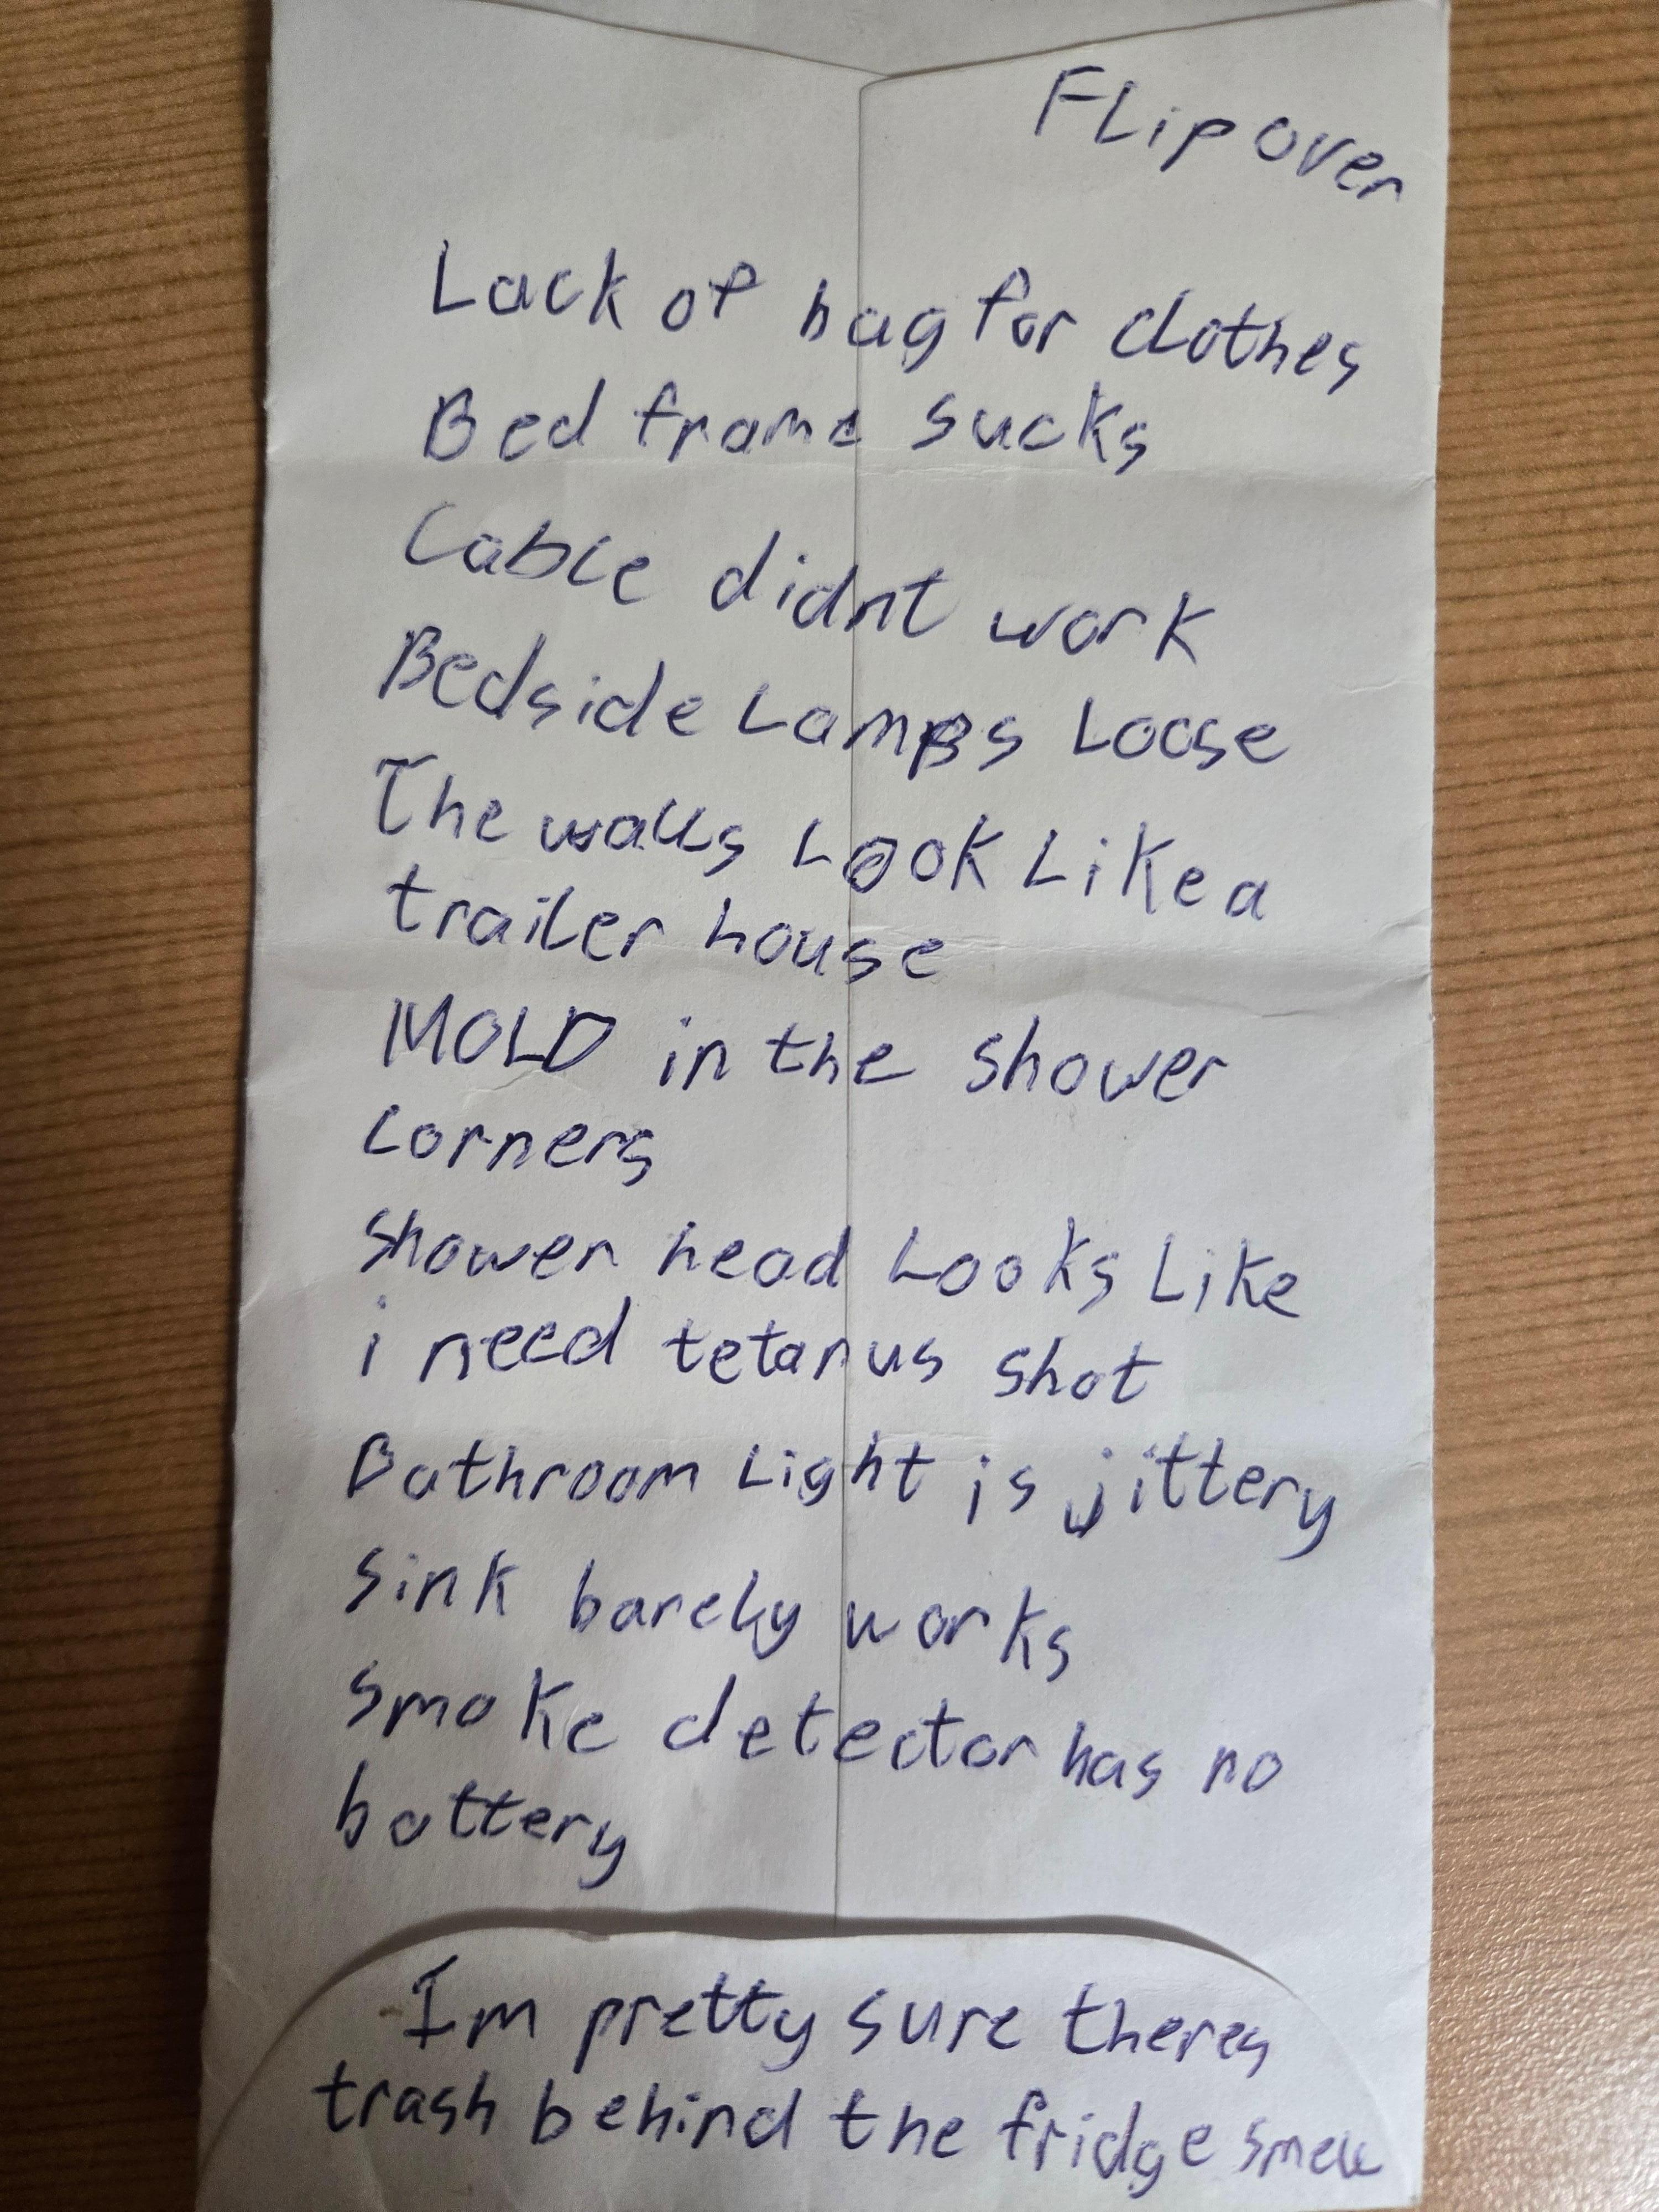 FLip over
Lack of bag for clothes
Bed frame sucks
Cable didnt work
Bedside Lamps Loose
The walls Look Like a
trailer house
MOLD in the shower
corners
shower head Looks Like
i need tetanus shot
Bathroom Light is jittery
sink barely works
smoke detector has no
battery
Im pretty sure theres
trash behind the fridge smell